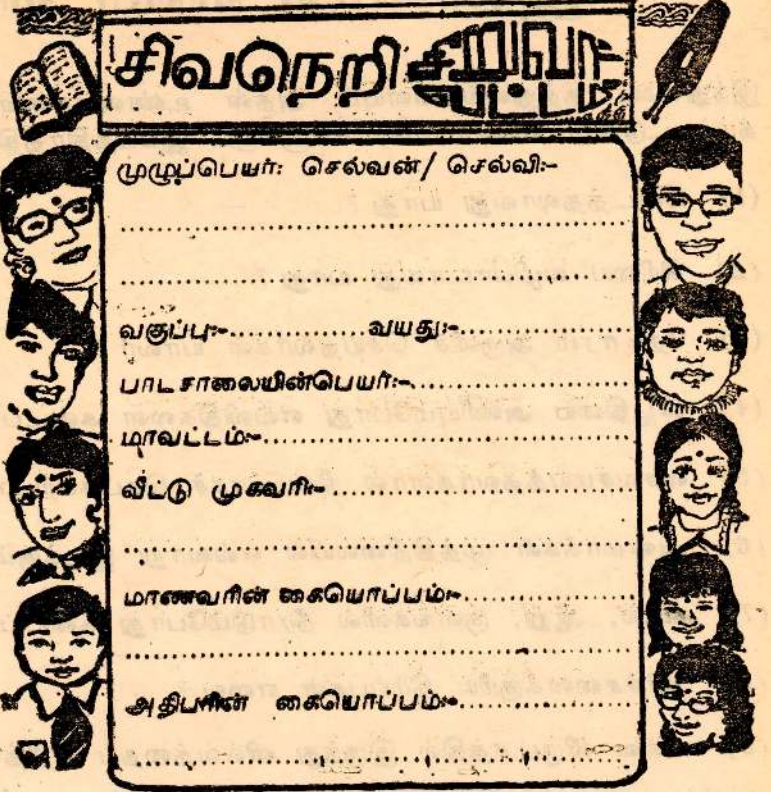 சிவநெறி சிறுவர் வட்டம்
முழுப்பெயர்: செல்வன்/ செல்வி:-
வகுப்பு:-................வயது:-................
பாடசாலையின்பெயர்:-................
மாவட்டம்:-................
வீட்டு முகவரி:-................
மாணவரின் கையொப்பம்:-................
அதிபரின் கையொப்பம்:-................